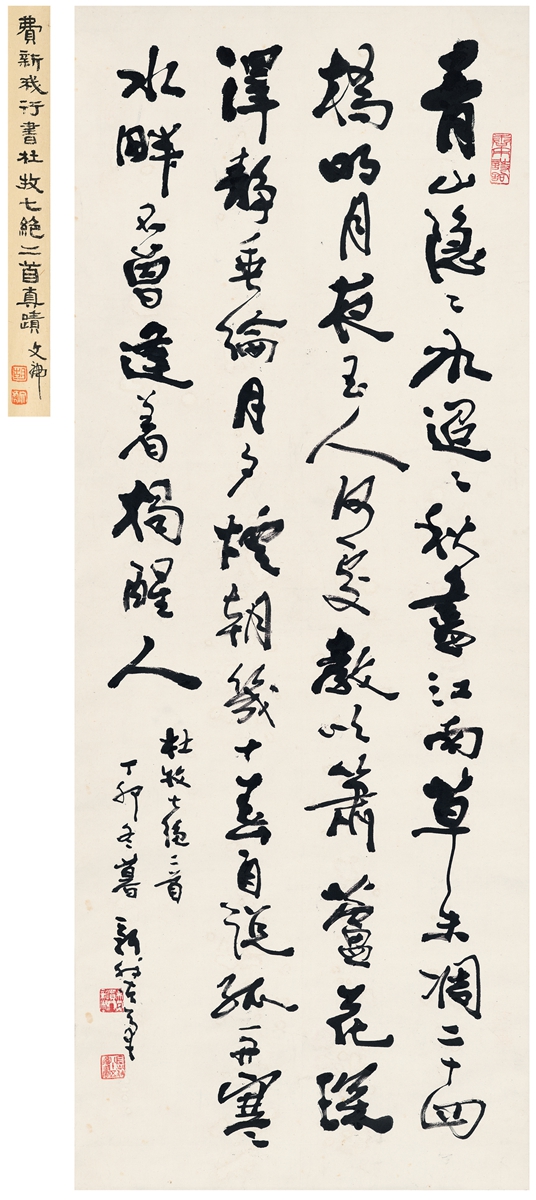 青山隐〻水迢〻秋盡江南草未凋二十四
橋明月夜玉人何處教吹簫蘆花深
澤靜垂綸月夕煙朝幾十春自説孤舟寒
水畔不曾逢着獨醒人
杜牧七絕二首
丁卯冬暮 新我左筆
費新我行書杜牧七絕二首真蹟 文